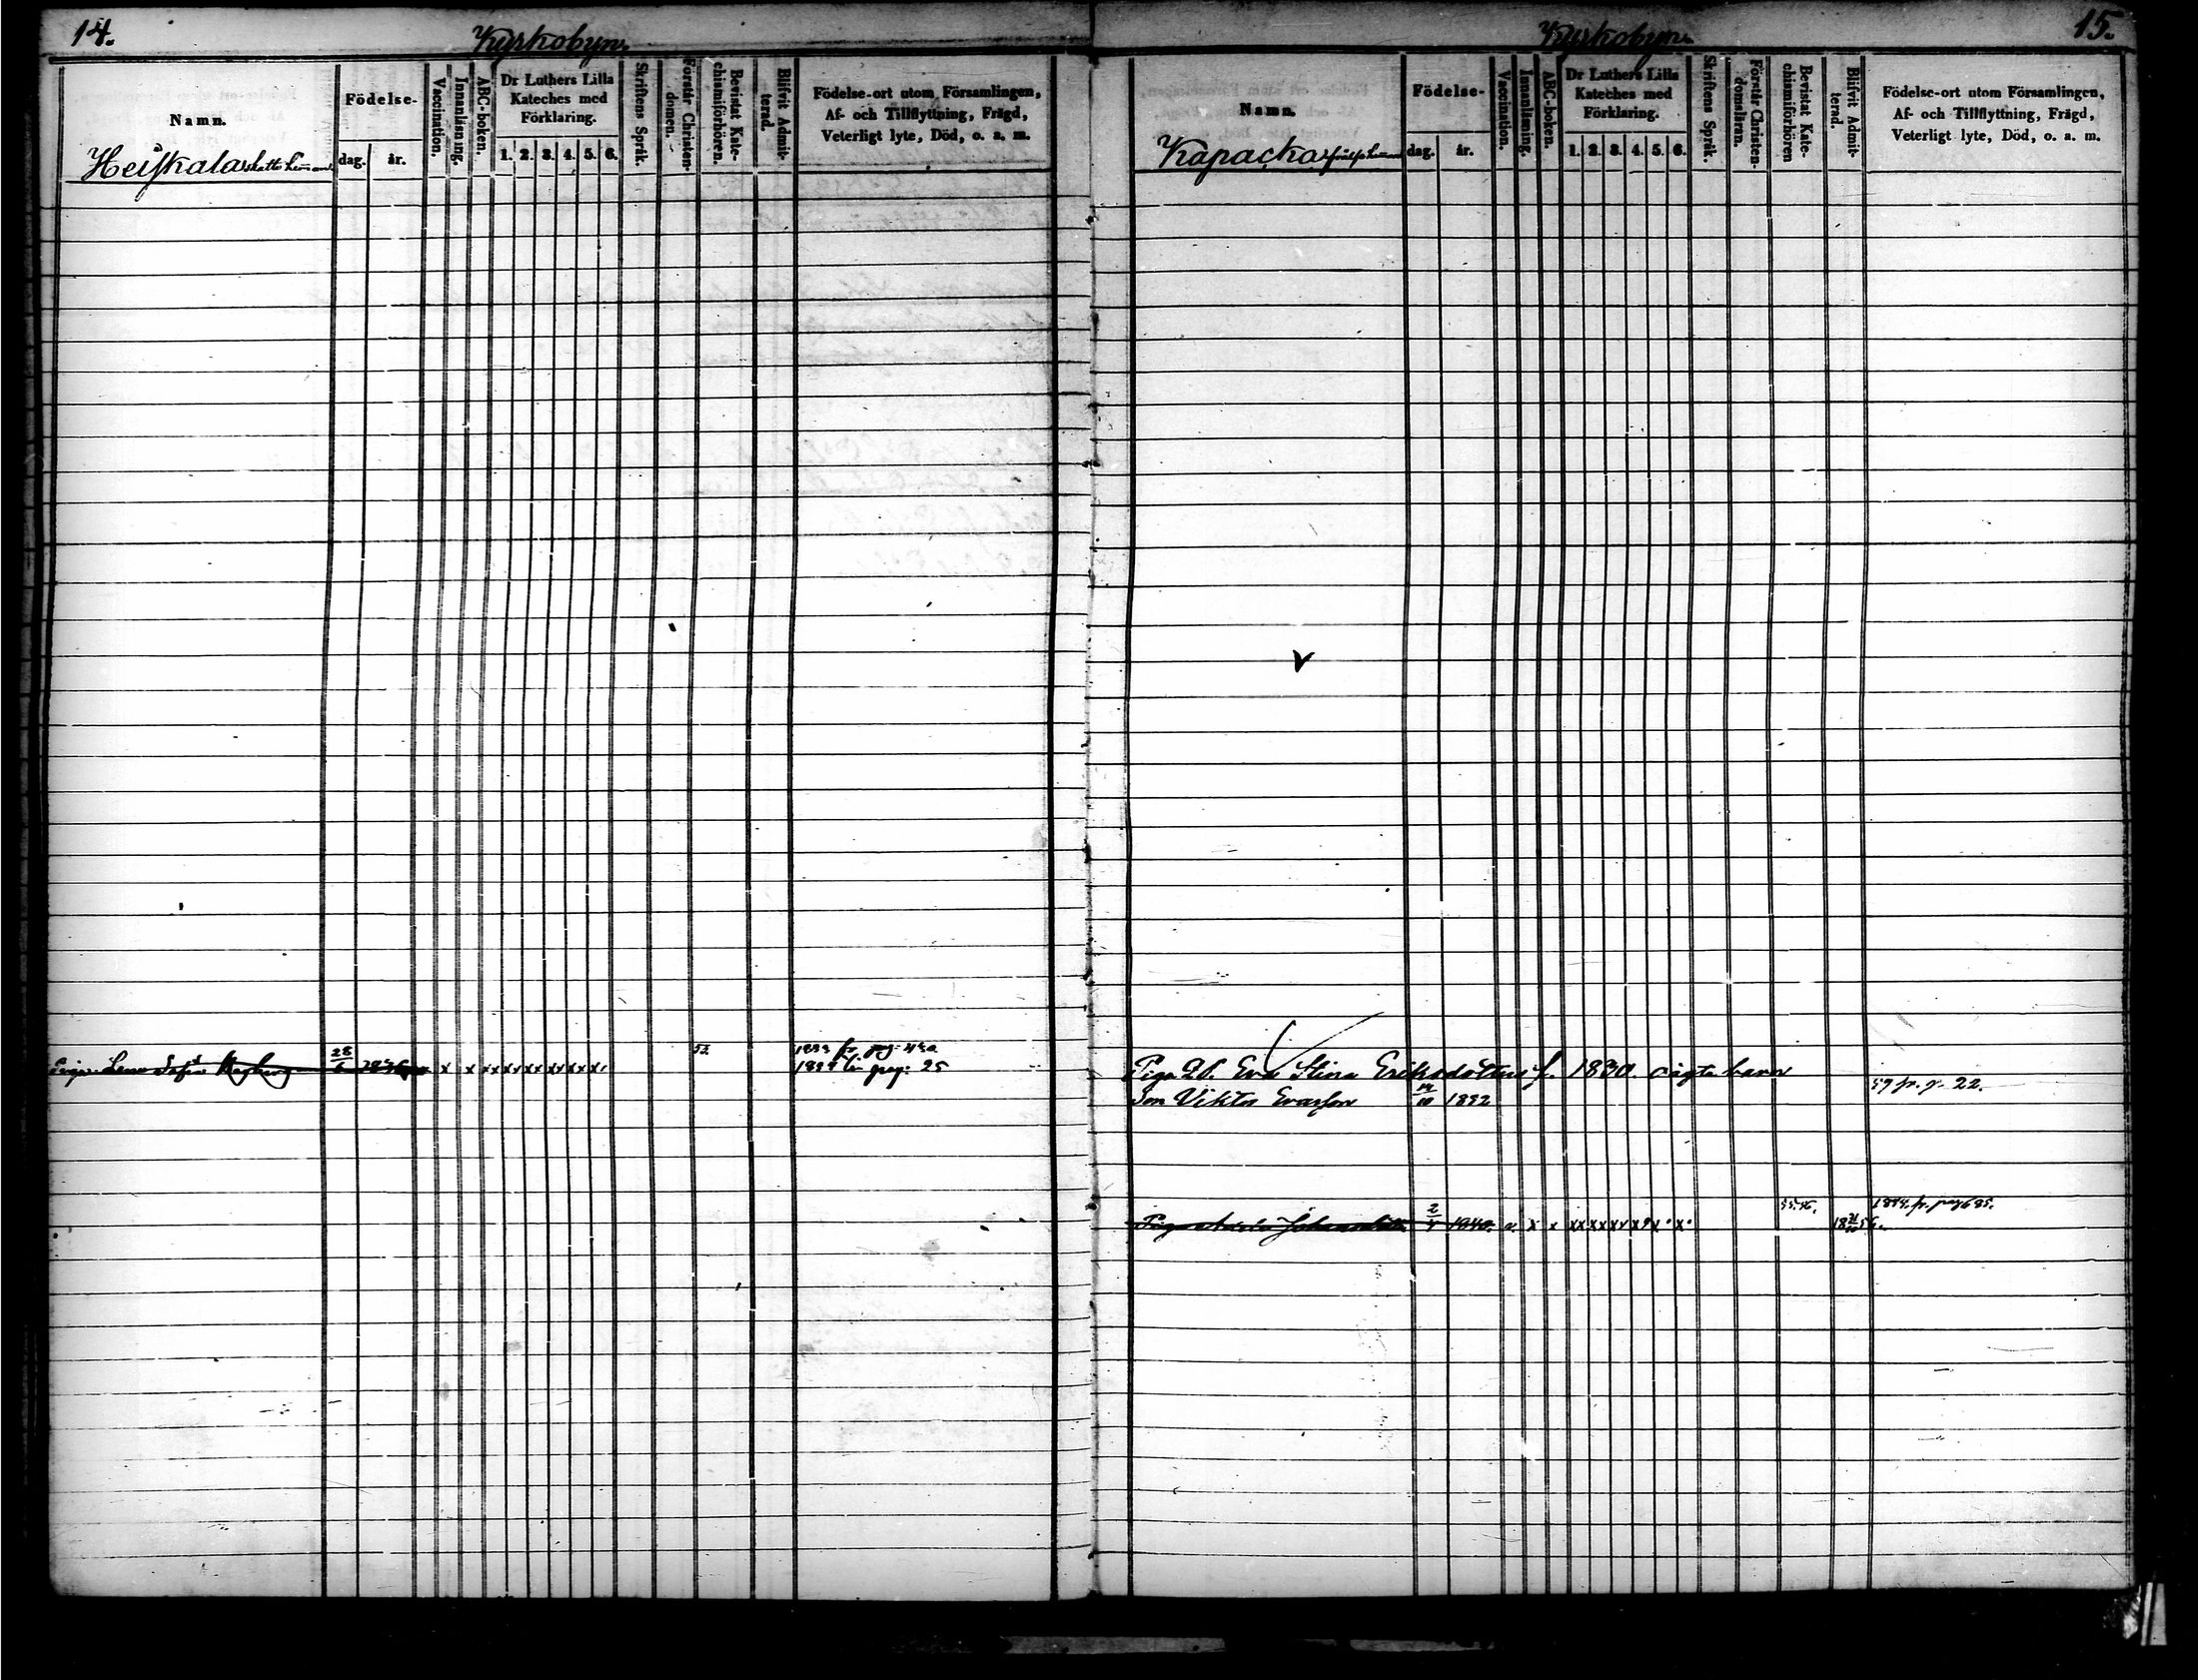 14.
Kyrkobyn.
Namn.
Heiskala skatte heman
Födelse-
dag.
år.
Vaccination.
Innanläsning.
ABC-boken.
Dr Luthers Lilla
Kateches med
Förklaring.
1. 2. 3. 4. 5. 6.
Skriftens Språk.
Förstår Christen-
domen.
Bevistat Kate-
chismiförhören.
Blifvit Admit-
terad.
Födelse-ort utom Församlingen,
Af- och Tillflyttning, Frägd,
Veterligt lyte, Död, o. a. m.
Piga Lena Sofia
28/6
x x xx xx xx xx xx x
53.
fr. pag.
till pag: 25
15.
Kyrkobyn.
Namn.
Kapacka
Födelse-
dag.
år.
Vaccination.
Innanläsning.
ABC-boken.
Dr Luthers Lilla
Kateches med
Förklaring.
1. 2. 3. 4. 5. 6.
Skriftens Språk.
Förstår Christen-
domsläran.
Bevistat Kate-
chismiförhören
Blifvit Admit-
terad.
Födelse-ort utom Församlingen,
Af- och Tillflyttning, Frägd,
Veterligt lyte, Död, o. a. m.
v
Piga Eva Stina Eriksdotter f. 1830. oägta barn
Son Viktor Evasson 1852
59 fr. p. 22.
Piga
2/4 1840. v. x x
55. 56.
fr. pag 685.